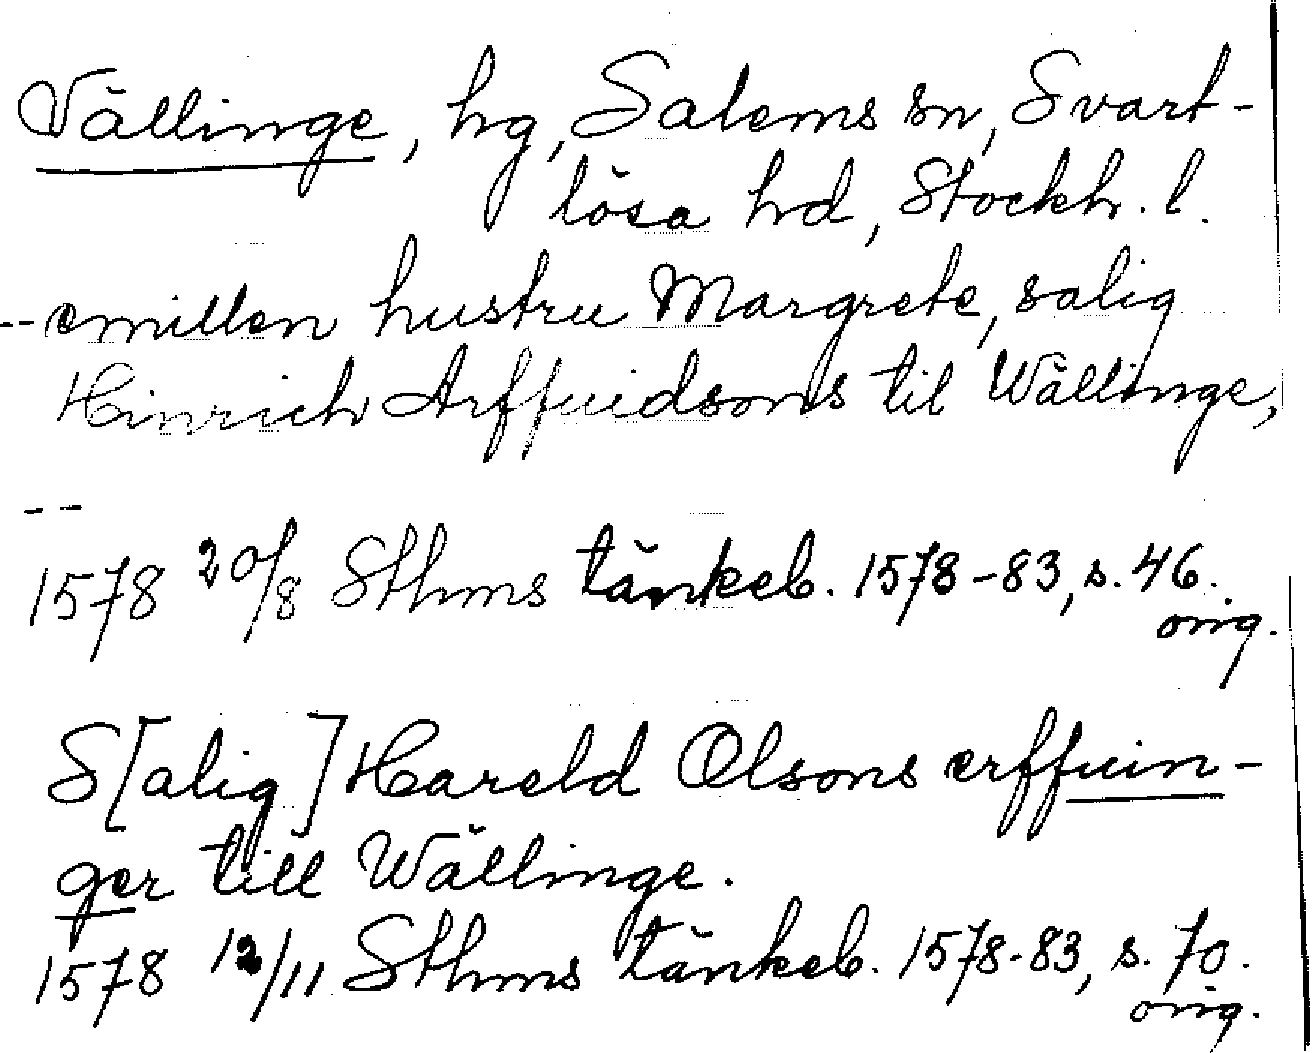 Vällinge, hg, Salems sn, Svart-
lösa hd, Stockh. l.
-- emillen hustru Margrete, salig
Hinrich Arffuidsons til Wällinge,
--
1578 20/8 Sthms tänkeb. 1578-83, s. 46.
orig.
S[alig] Hareld Olsons erffuin-
ger till Wällinge.
1578 12/11 Sthms tänkeb. 1578-83, s. 70.
orig.